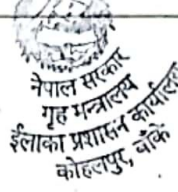 नेपाल सरकार
गृह मन्त्रालय
ईलाका प्रशासन कार्यालय
कोहलपुर, बाँके